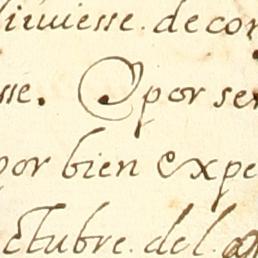 uviesse. de con
sse. O por ser
por bien expe
ctubre. del. a